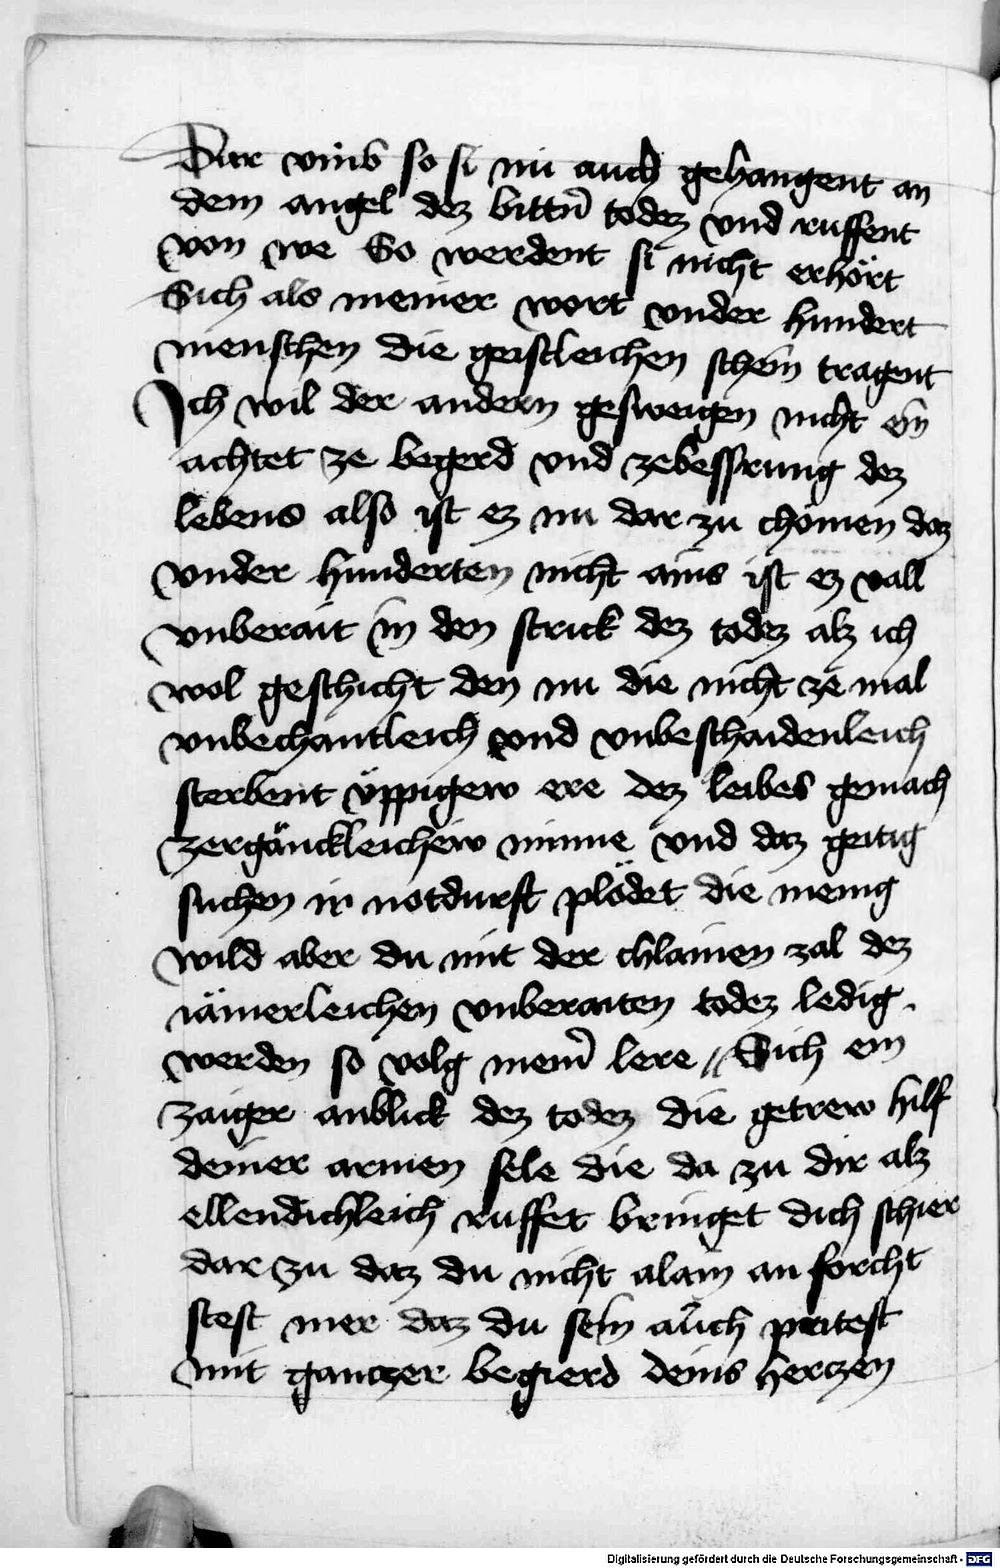 Dar vmb so si nu auch gehangent an
dem angel dez bittn̄ todez vnd ruffent
von we So werdent si nicht erhört
Sich als meiner wort vnder hundert
menschen die geistleichen schein tragent
Ich wil der andern gesweigen nicht ein
achtet ze begerd vnd zebessrung dez
lebens also ist ez nu dar zu chomen daz
vnder hunderten nicht ains ist ez vall
vnberait in den strick dez todez alz ich
wol geschicht den nu die nicht ze mal
vnbechantleich vnd vnbeschaidenleich
sterbent üppigew ere dez leibes gemach
zergänckleichew minne vnd daz geitig
suchen ir notdurft plödet die menig
wild aber du mit der chlainen zal dez
iämerleichen vnberaiten todez ledig.
werden so volg mein̄ lere // Sich ein
zaiger anblick dez todez die getrew hilf
deiner armen sele die da zu dir alz
ellendichleich ruffet bringet dich schier
dar zu daz du nicht alain an forcht
stest mer daz du sein auch paitest
mit ganczer begierd deins herczen
Digitalisierung gefördert durch die Deutsche Forschungsgemeinschaft - DFG